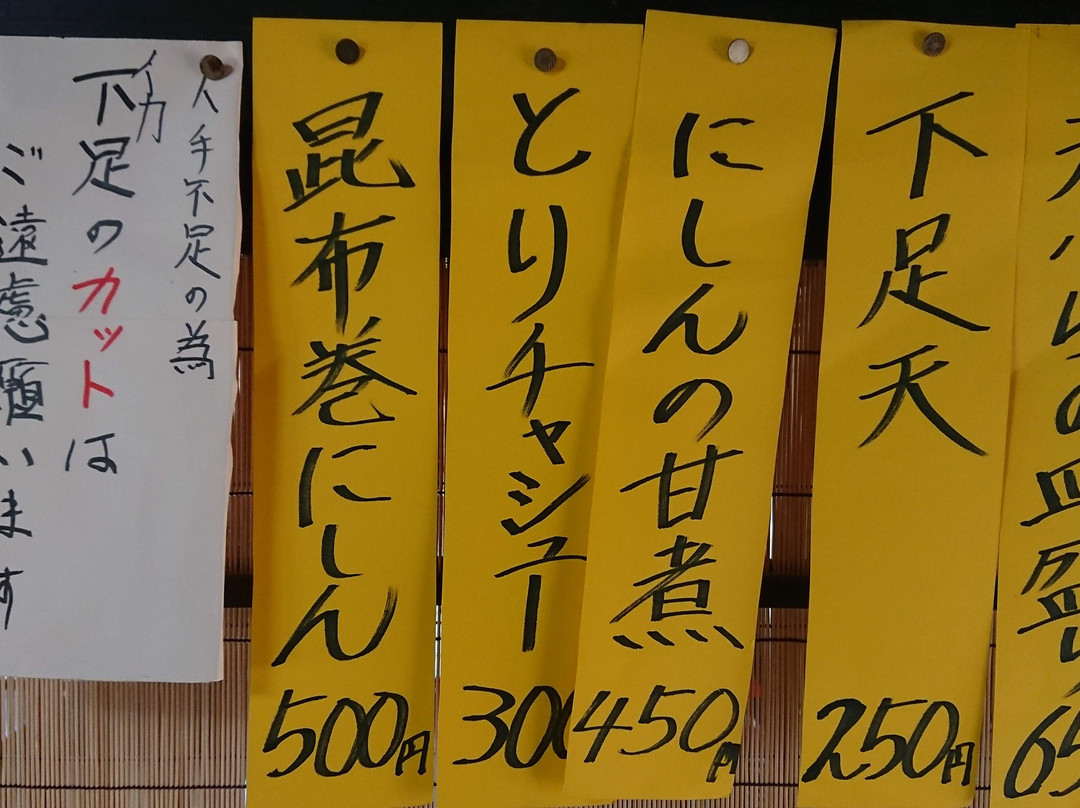 天ぷらの皿盛り
65
下足天
250円
にしんの甘煮
450円
とりチャシュー
300
昆布巻にしん
500円
人手不足の為
イカ
下足のカットは
ご遠慮願います